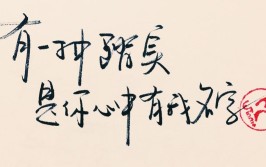 有一种踏实
是你心中有我名字